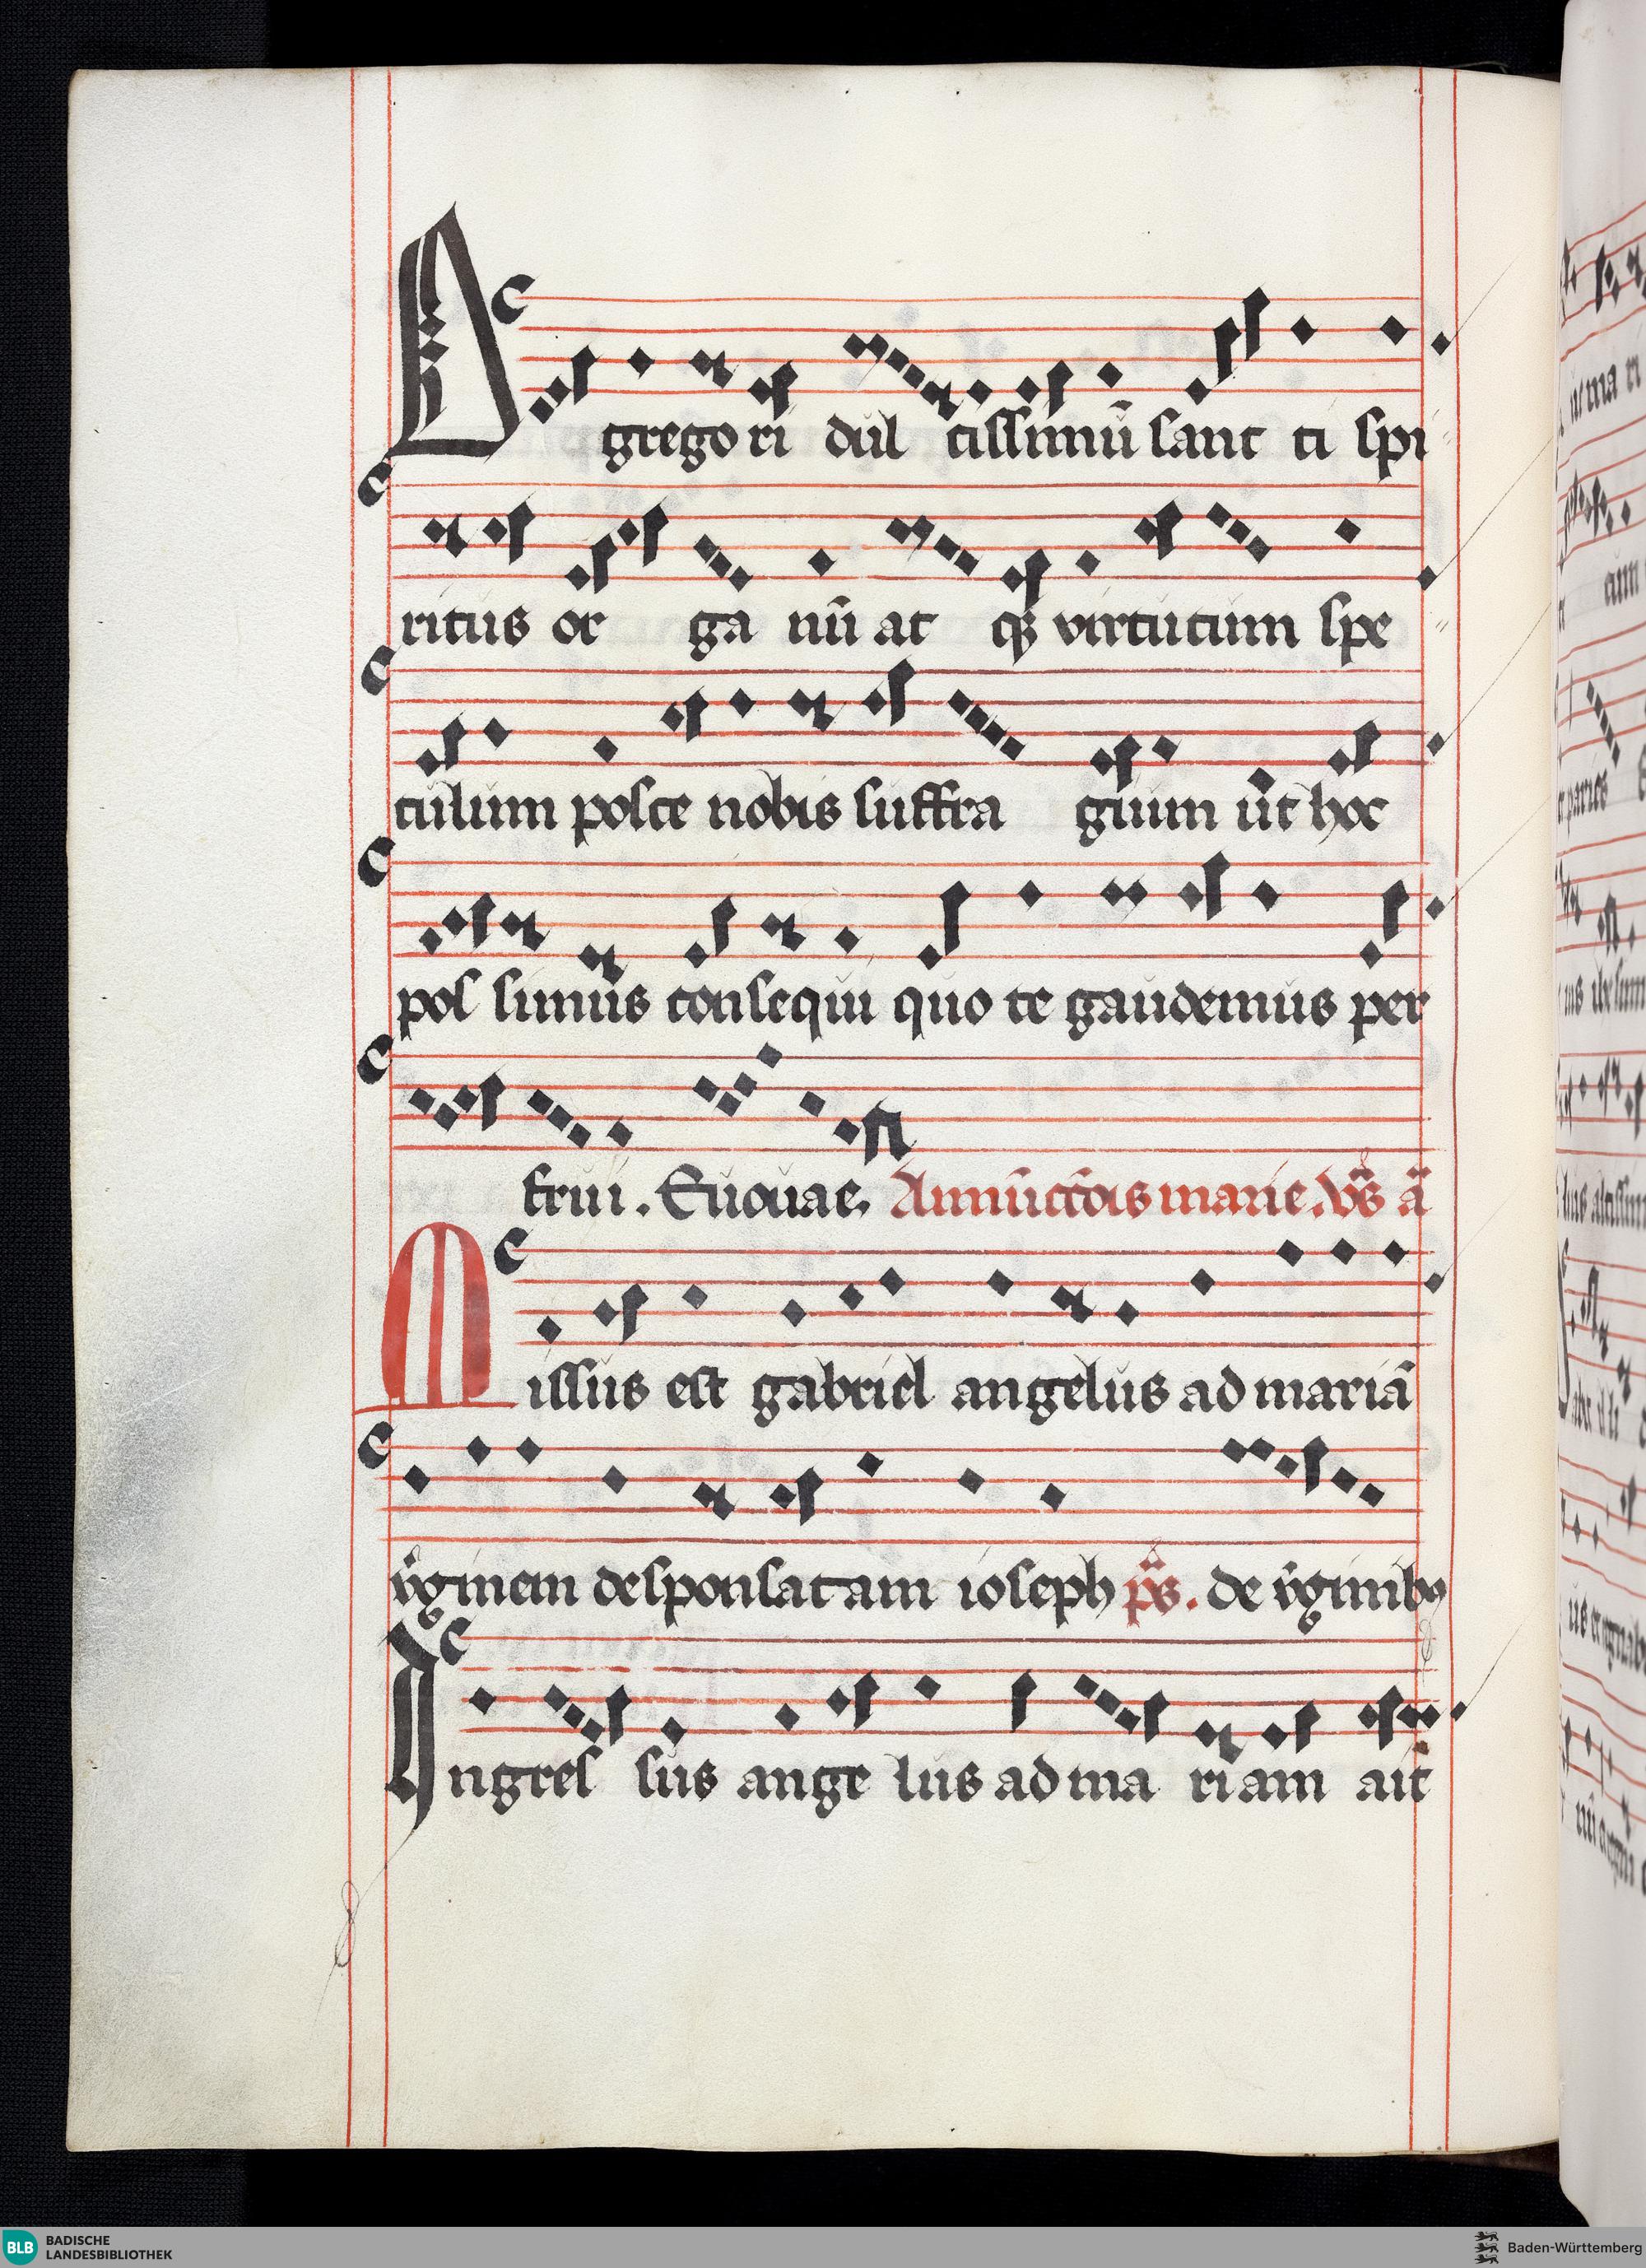 O gregori dulcissimū sancti spi
ritus organū atqꝫ virtutum spe
culum posce nobis suffragium ut hoc
possimus consequi quo te gaudemus per
frui. Euouae. Annūcc̄ois marie. vs̄ a᷑
Missus est gabriel angelus ad mariā
v̄ginem desponsatam ioseph ps̄. de v̄ginibꝰ
Ingressus angelus ad mariam ait
BLB BADISCHE LANDESBIBLIOTHEK
Baden-Württemberg